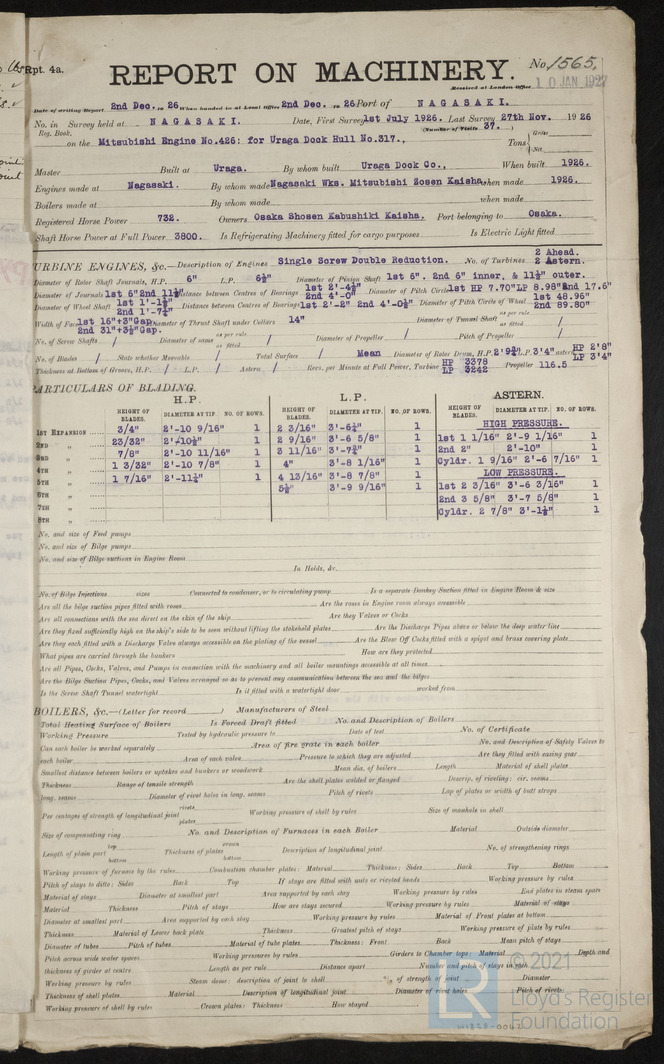 Rpt. 4a.
REPORT ON MACHINERY.
No. 1565.
Received at London Office 10 JAN 1927
Date of writing Report 2nd Dec. 1926 When handed in at Local Office 2nd Dec. 1926 Port of NAGASAKI.
No. in Survey held at NAGASAKI. Date, First Survey 1st July 1926. Last Survey 27th Nov. 1926
Reg. Book. (Number of Visits 37.)
on the Mitsubishi Engine No.426: for Uraga Dock Hull No.317., Tons Gross Net
Master Built at Uraga. By whom built Uraga Dock Co., When built 1926.
Engines made at Nagasaki. By whom made Nagasaki Wks. Mitsubishi Zosen Kaisha, when made 1926.
Boilers made at By whom made when made
Registered Horse Power 732. Owners Osaka Shosen Kabushiki Kaisha. Port belonging to Osaka.
Shaft Horse Power at Full Power 3800. Is Refrigerating Machinery fitted for cargo purposes Is Electric Light fitted
TURBINE ENGINES, &c.—Description of Engines Single Screw Double Reduction. No. of Turbines 2 Ahead. 2 Astern.
Diameter of Rotor Shaft Journals, H.P. 6" L.P. 6½" Diameter of Pinion Shaft 1st 6". 2nd 6" inner, & 11½" outer.
Diameter of Journals 1st 6" 2nd 11½" Distance between Centres of Bearings 1st 2'-4½" 2nd 4'-0" Diameter of Pitch Circle 1st HP 7.70" LP 8.98" 2nd 17.6"
Diameter of Wheel Shaft 1st 1'-1½" 2nd 1'-7½" Distance between Centres of Bearings 1st 2'-2" 2nd 4'-0½" Diameter of Pitch Circle of Wheel 1st 48.96" 2nd 89.80"
Width of Face 1st 16"+3"Gap 2nd 31"+3½"Gap. Diameter of Thrust Shaft under Collars 14" Diameter of Tunnel Shaft as per rule as fitted
No. of Screw Shafts / Diameter of same as per rule as fitted / Diameter of Propeller / Pitch of Propeller /
No. of Blades / State whether Moveable / Total Surface / Mean Diameter of Rotor Drum, H.P. 2'9¾" L.P. 3'4" astern HP 2'8" LP 3'4"
Thickness at Bottom of Groove, H.P. / L.P. / Astern / Revs. per Minute at Full Power, Turbine HP 3378 LP 3242 Propeller 116.5
PARTICULARS OF BLADING.
H.P. L.P. ASTERN.
HEIGHT OF BLADES. DIAMETER AT TIP. NO. OF ROWS. HEIGHT OF BLADES. DIAMETER AT TIP. NO. OF ROWS. HEIGHT OF BLADES. DIAMETER AT TIP. NO. OF ROWS.
HIGH PRESSURE.
1ST EXPANSION 3/4" 2'-10 9/16" 1 2 3/16" 3'-6¼" 1 1st 1 1/16" 2'-9 1/16" 1
2ND " 23/32" 2'-10½" 1 2 9/16" 3'-6 5/8" 1 2nd 2" 2'-10" 1
3RD " 7/8" 2'-10 11/16" 1 3 11/16" 3'-7¾" 1 Cyldr. 1 9/16" 2'-6 7/16" 1
4TH " 1 3/32" 2'-10 7/8" 1 4" 3'-8 1/16" 1 LOW PRESSURE.
5TH " 1 7/16" 2'-11¼" 1 4 13/16" 3'-8 7/8" 1 1st 2 3/16" 3'-6 3/16" 1
6TH " 5½" 3'-9 9/16" 1 2nd 3 5/8" 3'-7 5/8" 1
7TH " Cyldr. 2 7/8" 3'-1½" 1
8TH "
No. and size of Feed pumps
No. and size of Bilge pumps
No. and size of Bilge suctions in Engine Room
In Holds, &c.
No. of Bilge Injections sizes Connected to condenser, or to circulating pump Is a separate Donkey Suction fitted in Engine Room & size
Are all the bilge suction pipes fitted with roses Are the roses in Engine room always accessible
Are all connections with the sea direct on the skin of the ship Are they Valves or Cocks
Are they fixed sufficiently high on the ship's side to be seen without lifting the stokehold plates Are the Discharge Pipes above or below the deep water line
Are they each fitted with a Discharge Valve always accessible on the plating of the vessel Are the Blow Off Cocks fitted with a spigot and brass covering plate
What pipes are carried through the bunkers How are they protected
Are all Pipes, Cocks, Valves, and Pumps in connection with the machinery and all boiler mountings accessible at all times
Are the Bilge Suction Pipes, Cocks, and Valves arranged so as to prevent any communication between the sea and the bilges
Is the Screw Shaft Tunnel watertight Is it fitted with a watertight door worked from
BOILERS, &c.—(Letter for record ) Manufacturers of Steel
Total Heating Surface of Boilers Is Forced Draft fitted No. and Description of Boilers
Working Pressure Tested by hydraulic pressure to Date of test No. of Certificate
Can each boiler be worked separately Area of fire grate in each boiler No. and Description of Safety Valves to
each boiler Area of each valve Pressure to which they are adjusted Are they fitted with easing gear
Smallest distance between boilers or uptakes and bunkers or woodwork Mean dia. of boilers Length Material of shell plates
Thickness Range of tensile strength Are the shell plates welded or flanged Descrip. of riveting: cir. seams
long. seams Diameter of rivet holes in long. seams Pitch of rivets Lap of plates or width of butt straps
Per centages of strength of longitudinal joint rivets plates Working pressure of shell by rules Size of manhole in shell
Size of compensating ring No. and Description of Furnaces in each Boiler Material Outside diameter
Length of plain part top bottom Thickness of plates crown bottom Description of longitudinal joint No. of strengthening rings
Working pressure of furnace by the rules Combustion chamber plates: Material Thickness: Sides Back Top Bottom
Pitch of stays to ditto: Sides Back Top If stays are fitted with nuts or riveted heads Working pressure by rules
Material of stays Diameter at smallest part Area supported by each stay Working pressure by rules End plates in steam space
Material Thickness Pitch of stays How are stays secured Working pressure by rules Material of stays
Diameter at smallest part Area supported by each stay Working pressure by rules Material of Front plates at bottom
Thickness Material of Lower back plate Thickness Greatest pitch of stays Working pressure of plate by rules
Diameter of tubes Pitch of tubes Material of tube plates Thickness: Front Back Mean pitch of stays
Pitch across wide water spaces Working pressures by rules Girders to Chamber tops: Material Depth and
thickness of girder at centre Length as per rule Distance apart Number and pitch of stays in each
Working pressure by rules Steam dome: description of joint to shell % of strength of joint Diameter
Thickness of shell plates Material Description of longitudinal joint Diameter of rivet holes Pitch of rivets
Working pressure of shell by rules Crown plates: Thickness How stayed
LR © 2021
Lloyd's Register
Foundation